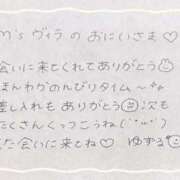 M's ヴィラ の おにいさま♡
会いに来てくれてありがとう☺
ほんわかのんびりタイム 〜
差し入れも ありがとう☺次も
たくさんくっつこうね(˙ᵕ˙)
また会いに来てね♡ ゆずる☺